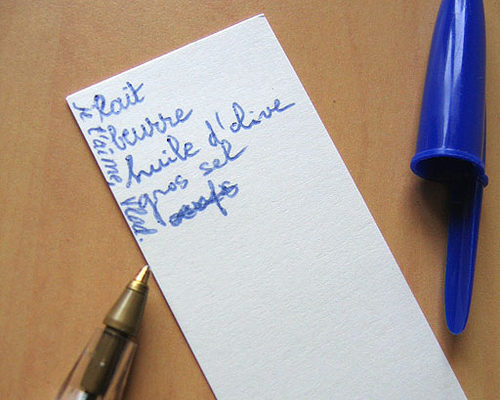 lait
beurre
huile d'olive
gros sel
oeufs
Je t'aime Vlad.